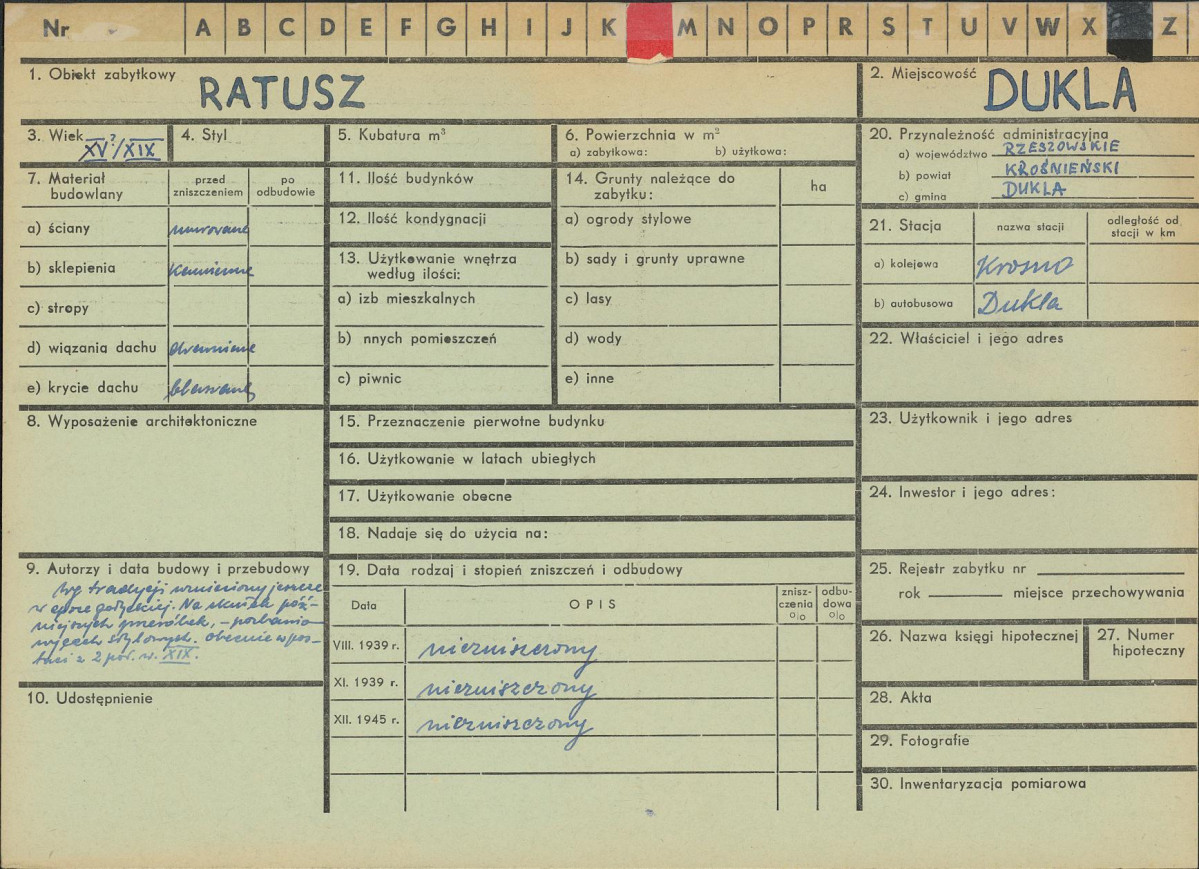 Nr A B C D E F G H I J K M N O P R S T U V W X Z
1. Obiekt zabytkowy RATUSZ
2. Miejscowość DUKLA
3. Wiek XV?/XIX
4. Styl
5. Kubatura m³
6. Powierzchnia w m²
a) zabytkowa: b) użytkowa:
20. Przynależność administracyjna
a) województwo RZESZOWSKIE
b) powiat KROŚNIEŃSKI
c) gmina DUKLA
7. Materiał budowlany
przed zniszczeniem
po odbudowie
a) ściany murowane
b) sklepienia kamienne
c) stropy
d) wiązania dachu drewniane
e) krycie dachu blaszane
11. Ilość budynków
12. Ilość kondygnacji
13. Użytkowanie wnętrza
według ilości:
a) izb mieszkalnych
b) nnych pomieszczeń
c) piwnic
14. Grunty należące do
zabytku:
ha
a) ogrody stylowe
b) sady i grunty uprawne
c) lasy
d) wody
e) inne
21. Stacja
nazwa stacji
odległość od
stacji w km
a) kolejowa Krosno
b) autobusowa Dukla
22. Właściciel i jego adres
8. Wyposażenie architektoniczne
15. Przeznaczenie pierwotne budynku
16. Użytkowanie w latach ubiegłych
17. Użytkowanie obecne
18. Nadaje się do użycia na:
23. Użytkownik i jego adres
24. Inwestor i jego adres:
9. Autorzy i data budowy i przebudowy
wg tradycji wzniesiony jeszcze
w epoce gotyckiej. Na skutek póź-
niejszych przeróbek, - pozbawio
ny cech stylowych. Obecnie w pos-
taci z 2 poł. w. XIX.
10. Udostępnienie
19. Data rodzaj i stopień zniszczeń i odbudowy
Data
OPIS
znisz-
czenia
%
odbu-
dowa
%
VIII. 1939 r. niezniszczony
XI. 1939 r. niezniszczony
XII. 1945 r. niezniszczony
25. Rejestr zabytku nr
rok miejsce przechowywania
26. Nazwa księgi hipotecznej
27. Numer
hipoteczny
28. Akta
29. Fotografie
30. Inwentaryzacja pomiarowa